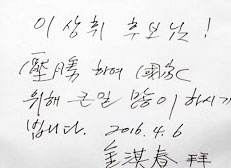 이상휘 후보님!
壓勝 하여 國家
위해 큰일 많이 하시기
빕니다. 2016. 4. 6
金淇春 拜